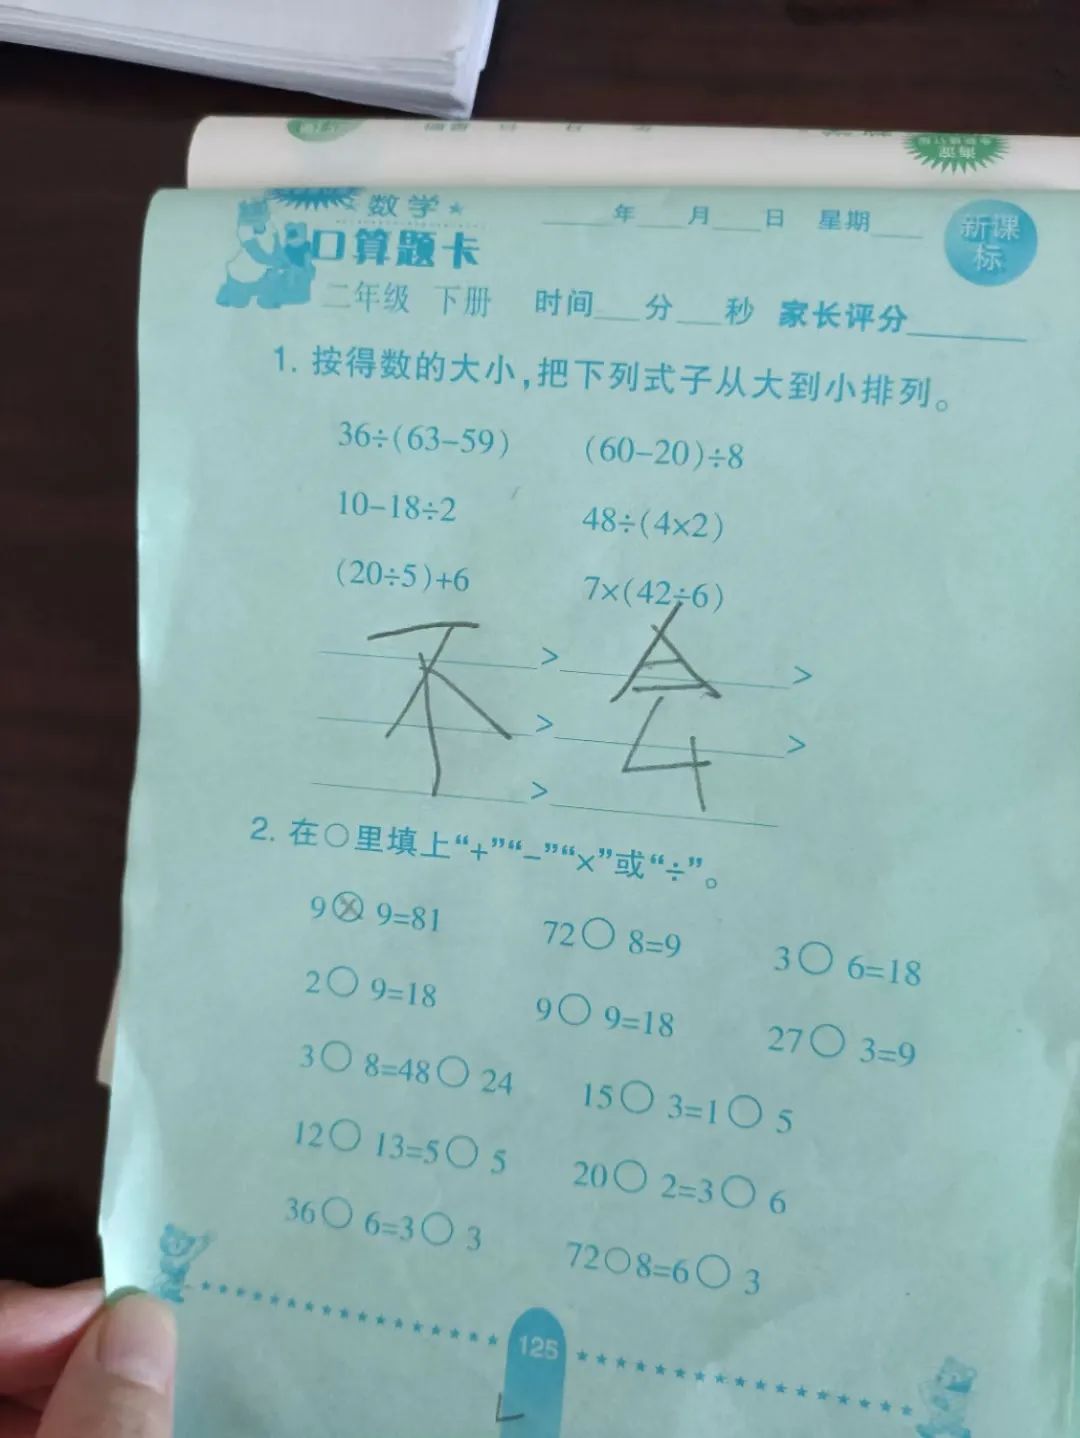 数学
口算题卡
____年____月____日 星期____
新课标
二年级 下册 时间___分___秒 家长评分______
1. 按得数的大小,把下列式子从大到小排列。
36÷(63-59) (60-20)÷8
10-18÷2 48÷(4×2)
(20÷5)+6 7×(42÷6)
不会
______>______>
______>______>
______>______
2. 在○里填上“+”“-”“×”或“÷”。
9⊗9=81 72○8=9 3○6=18
2○9=18 9○9=18 27○3=9
3○8=48○24 15○3=1○5
12○13=5○5 20○2=3○6
36○6=3○3 72○8=6○3
125